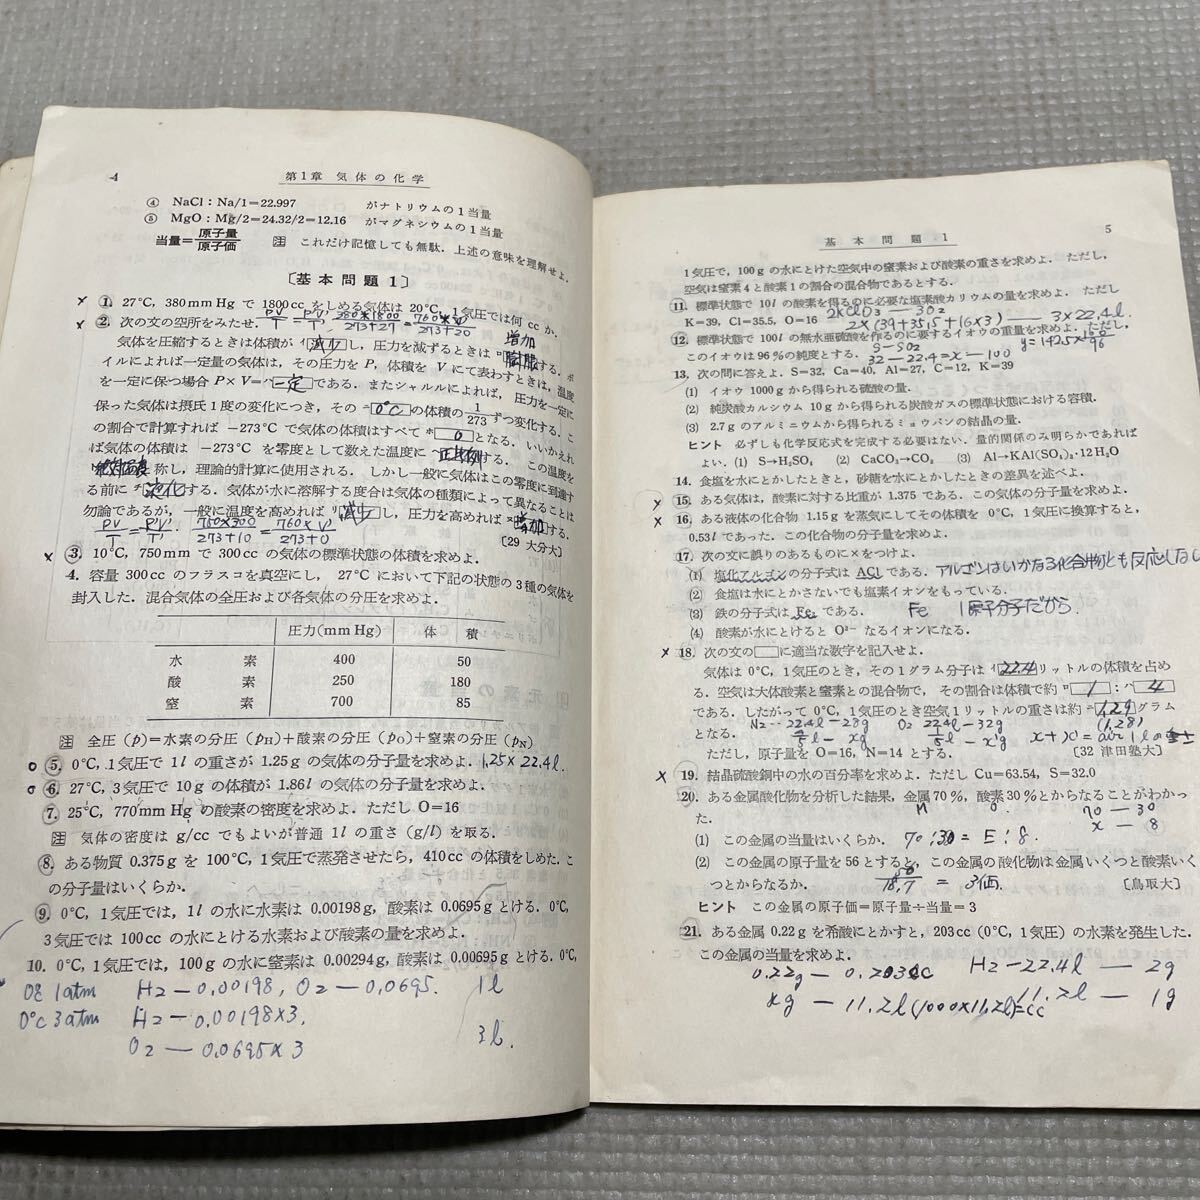 4
第1章 気体の化学
④ NaCl : Na/1=22.997 がナトリウムの1当量
⑤ MgO : Mg/2=24.32/2=12.16 がマグネシウムの1当量
当量=原子量/原子価 注 これだけ記憶しても無駄.上述の意味を理解せよ.
〔基本問題1〕
× ①. 27°C, 380mmHg で 1800cc をしめる気体は 20°C, 1気圧では何 cc か.
PV/T = P'V'/T', 380×1800/273+27 = 760×V'/273+20
× ②. 次の文の空所をみたせ.
増加
気体を圧縮するときは体積が イ減少し,圧力を減ずるときは ロ膨脹する.ボ
イルによれば一定量の気体は,その圧力を P, 体積を V にて表わすときは,温度
を一定に保つ場合 P×V=ハ一定である.またシャルルによれば,圧力を一定に
保った気体は摂氏1度の変化につき,その ニ0°Cの体積の 1/273 ずつ変化する.こ
の割合で計算すれば −273°C で気体の体積はすべて ホ0となる.いいかえれ
ば気体の体積は −273°C を零度として数えた温度に ヘ正比例する.この温度を
絶対温度称し,理論的計算に使用される.しかし一般に気体はこの零度に到達す
る前に チ液化する.気体が水に溶解する度合は気体の種類によって異なることは
勿論であるが,一般に温度を高めれば リ減少し,圧力を高めれば ヌ増加する.
PV/T = P'V'/T'. 750×300/273+10 = 760×V'/273+0
〔29 大分大〕
× ③. 10°C, 750mm で 300cc の気体の標準状態の体積を求めよ.
4. 容量 300cc のフラスコを真空にし, 27°C において下記の状態の3種の気体を
封入した.混合気体の全圧および各気体の分圧を求めよ.
圧力(mmHg) 体積
水素 400 50
酸素 250 180
窒素 700 85
注 全圧(p)=水素の分圧(pH)+酸素の分圧(pO)+窒素の分圧(pN)
○ ⑤. 0°C, 1気圧で 1l の重さが 1.25g の気体の分子量を求めよ. 1.25×22.4l.
○ ⑥. 27°C, 3気圧で 10g の体積が 1.86l の気体の分子量を求めよ.
⑦. 25°C, 770mmHg の酸素の密度を求めよ.ただし O=16
注 気体の密度は g/cc でもよいが普通 1l の重さ (g/l) を取る.
⑧. ある物質 0.375g を 100°C, 1気圧で蒸発させたら, 410cc の体積をしめた.こ
の分子量はいくらか.
⑨. 0°C, 1気圧では, 1l の水に水素は 0.00198g, 酸素は 0.0695g とける. 0°C,
3気圧では 100cc の水にとける水素および酸素の量を求めよ.
10. 0°C, 1気圧では, 100g の水に窒素は 0.00294g, 酸素は 0.00695g とける. 0°C,
H2−0.00198, O2−0.0695. 1l
0°C 3atm H2−0.00198×3.
O2−0.0695×3 3l.
基本問題1
5
1気圧で, 100g の水にとけた空気中の窒素および酸素の重さを求めよ.ただし,
空気は窒素4と酸素1の割合の混合物であるとする.
⑪. 標準状態で 10l の酸素を得るのに必要な塩素酸カリウムの量を求めよ. ただし
K=39, Cl=35.5, O=16 2KClO3 — 3O2
2×(39+35.5+16×3) — 3×22.4l
⑫. 標準状態で 100l の無水亜硫酸を作るのに要するイオウの重量を求めよ.ただし,
このイオウは96%の純度とする. S−SO2 y=142.5×100/96
32−22.4=x−100
13. 次の問に答えよ. S=32, Ca=40, Al=27, C=12, K=39
(1) イオウ 1000g から得られる硫酸の量.
(2) 純炭酸カルシウム 10g から得られる炭酸ガスの標準状態における容積.
(3) 2.7g のアルミニウムから得られるミョウバンの結晶の量.
ヒント 必ずしも化学反応式を完成する必要はない.量的関係のみ明らかであれば
よい.(1) S→H₂SO₄ (2) CaCO₃→CO₂ (3) Al→KAl(SO₄)₂·12H₂O
14. 食塩を水にとかしたときと,砂糖を水にとかしたときの差異を述べよ.
× ⑮. ある気体は,酸素に対する比重が 1.375 である.この気体の分子量を求めよ.
× ⑯. ある液体の化合物 1.15g を蒸気にしてその体積を 0°C, 1気圧に換算すると,
0.53l であった.この化合物の分子量を求めよ.
⑰. 次の文に誤りのあるものに×をつけよ.
(1) 塩化アルゴンの分子式は ACl である. アルゴンはいかなる化合物とも反応しない
(2) 食塩は水にとかさないでも塩素イオンをもっている.
(3) 鉄の分子式は Fe₂ である. Fe 1原子分子だから.
(4) 酸素が水にとけると O²⁻ なるイオンになる.
× 18. 次の文の□に適当な数字を記入せよ.
気体は 0°C, 1気圧のとき,その1グラム分子は イ22.4リットルの体積を占め
る.空気は大体酸素と窒素との混合物で,その割合は体積で約 ロ1 : ハ4
である.したがって 0°C, 1気圧のとき空気1リットルの重さは約 ニ1.29グラム
となる. N2… 22.4l−28g O2 22.4l−32g (1.28)
4/5l−xg 1/5l−x'g x+x'=air 1lの
ただし,原子量を O=16, N=14 とする. 〔32 津田塾大〕
× 19. 結晶硫酸銅中の水の百分率を求めよ.ただし Cu=63.54, S=32.0
20. ある金属酸化物を分析した結果,金属70%, 酸素30%とからなることがわかっ
た. M O 70−30
x−8
(1) この金属の当量はいくらか. 70:30=E:8.
(2) この金属の原子量を56とすると,この金属の酸化物は金属いくつと酸素いく
つとからなるか. 56/18.7 = 3価. 〔鳥取大〕
ヒント この金属の原子価=原子量÷当量=3
21. ある金属 0.22g を希酸にとかすと, 203cc (0°C, 1気圧) の水素を発生した.
この金属の当量を求めよ.
0.22g − 0.203 H2−22.4l — 2g
xg − 11.2l(1000×11.2l)=cc 11.2l — 1g